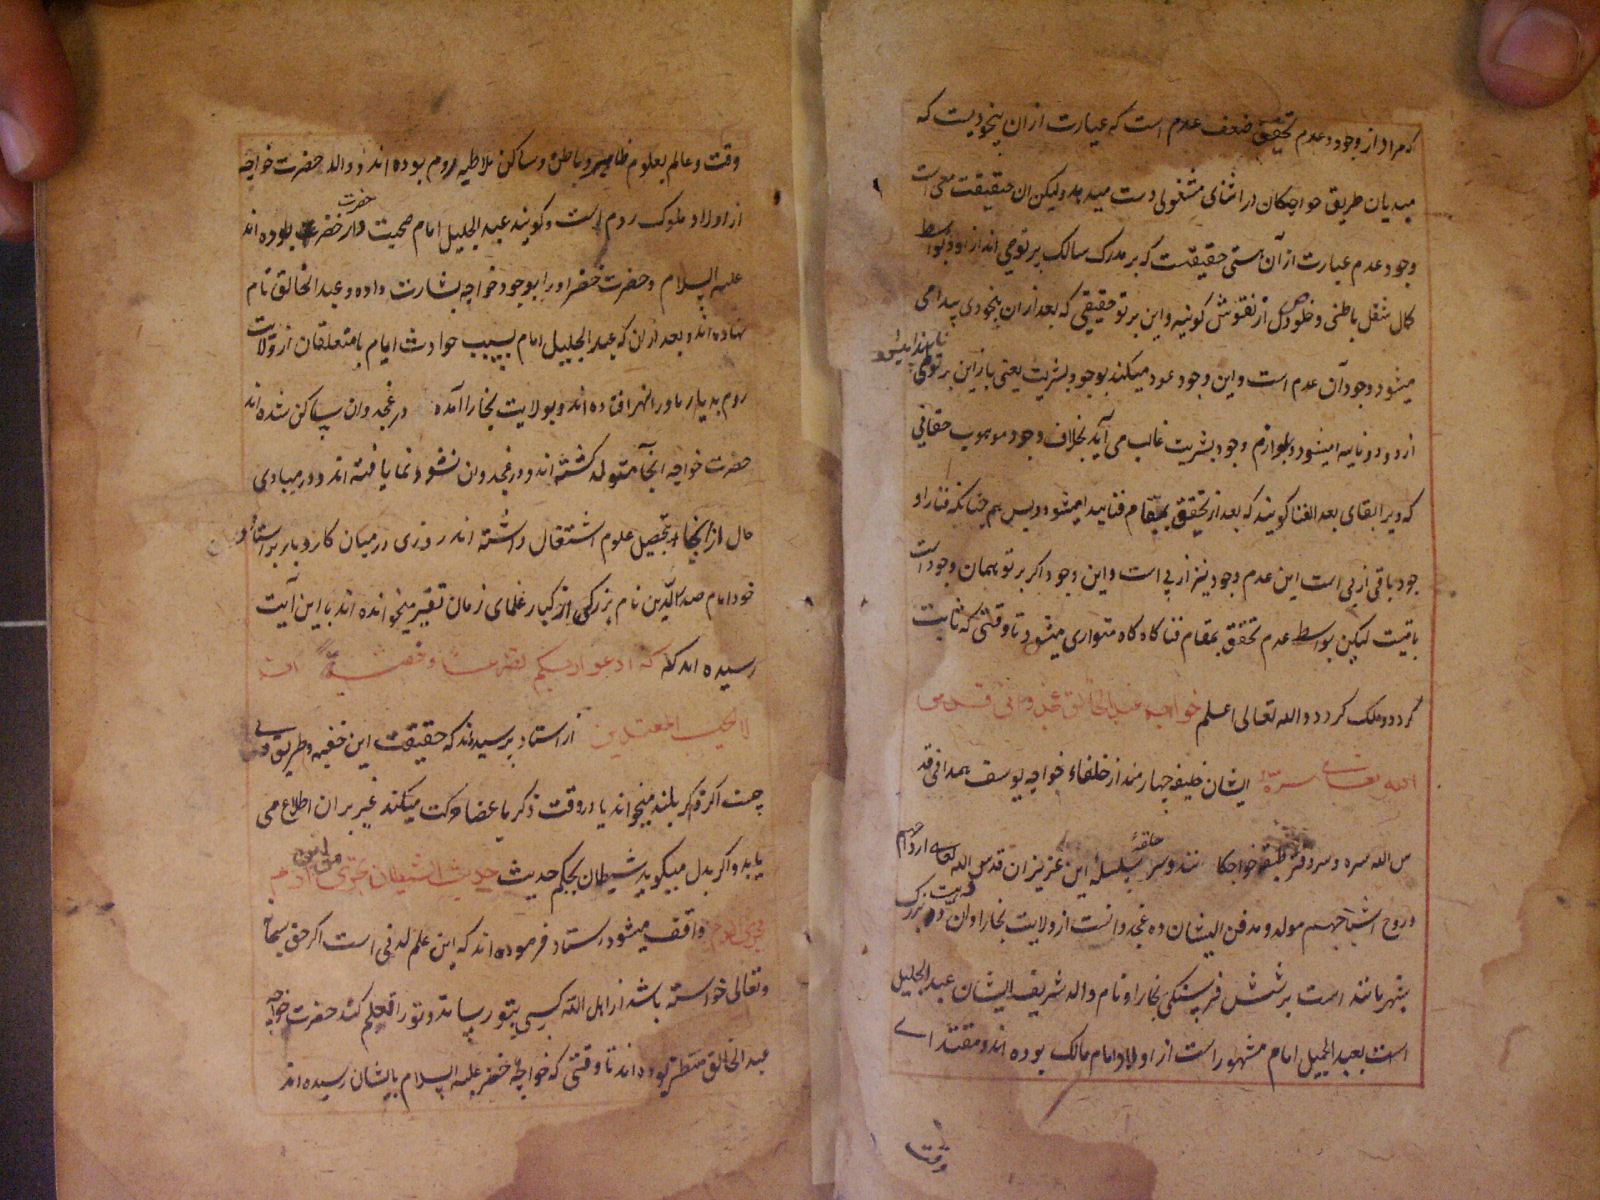 که مراد از وجود و عدم تحقیق ضعف عدم است که عبارت از ان بیخودیست که
مبدیان طریق خواجکان در اثنای مشغولی دست میدهد ولیکن ان حقیقت محی است
وجود عدم عبارت از آن هستی حقیقیست که بر مدرک سالک پرتو می اندازد و بواسطه
کمال شغل باطنی و خلو دل از نقوش کونیه و این پرتو حقیقی که بعد از ان بیخودی پیدا می
میشود وجود آن عدم است و این وجود عود میکند بوجود بشریت یعنی باز این پرتو
از دو دو ناپیدا میشود و لوازم وجود بشریت غالب می آید بخلاف وجود موهوب حقانی
که ویرا بقای بعد الفنا کویند که بعد از تحقیق بمقام فنا پیدا میشود و پس هم چنانکه فنا را و
جود باقی از پی است این عدم وجود نیز از پی است و این وجود اکر پرتو همان وجود است
باقیست لیکن بواسطه عدم تحقق بمقام فنا کاه کاه متواری میشود تا وقتی که ثابت
کردد و ملک کردد والله تعالی اعلم خواجه عبدالخالق غجدوانی قدس
الله تعالی سره ایشان خلیفه چهارمند از خلفاء خواجه یوسف همدانی قد
س الله سره و سر دفتر طبقه خواجکا نند و سر حلقه سلسلهٔ این عزیزان قدس الله تعالی ارواحهم
و روح اشباحهم مولد و مدفن ایشان ده غجدوانست از ولایت بخارا و ان ده قریت بزرک
بشهر مانند است بر شش فرسنکی بخارا و نام والد شریف ایشان عبد الجلیل
است بعبد الجمیل امام مشهور است از اولاد امام مالک بوده اند و مقتدای
وقت
وقت و عالم بعلوم ظاهر و باطن و ساکن ملاطیه روم بوده اند و والده حضرت خواجه
از اولاد ملوک روم است و کویند عبد الجلیل امام صحبت دار حضرت خضر بوده اند
علیه السلام و حضرت خضر او را بوجود خواجه بشارت داده و عبد الخالق نام
نهاده اند و بعد از ان که عبد الجلیل امام بسبب حوادث ایام با متعلقان از ولایت
روم بدیار ماورا النهر افتاده اند و بولایت بخارا آمده در غجدوان ساکن شده اند
حضرت خواجه انجا متولد کشته اند و در غجدوان نشو و نما یافته اند و در مبادی
حال از انجا بتحصیل علوم اشتغال داشته اند روزی در میان کار و بار بر استاد
خود امام صدر الدین نام بزرکی از کبار علمای زمان تفسیر میخوانده اند باین آیت
رسیده اند که ادعوا ربکم تضرعا و خفیة انه
لا یحب المعتدین از استاد پرسیدند که حقیقت این خفیه و طریق وی
چیست اکر ذاکر بلند میخواند یا در وقت ذکر باعضا حرکت میکند غیر بران اطلاع می
یابد و اکر بدل میکوید شیطان بحکم حدیث الشیطان یجری من ابن آدم
مجری الدم واقف میشود استاد فرموده اند که این علم لدنی است اکر حق سبحانه
و تعالی خواسته باشد از اهل الله کسی بتو رساند و تو را تعلیم کند حضرت خواجه
عبد الخالق منتظر بوده اند تا وقتی که خواجه خضر علیه السلام بایشان رسیده اند